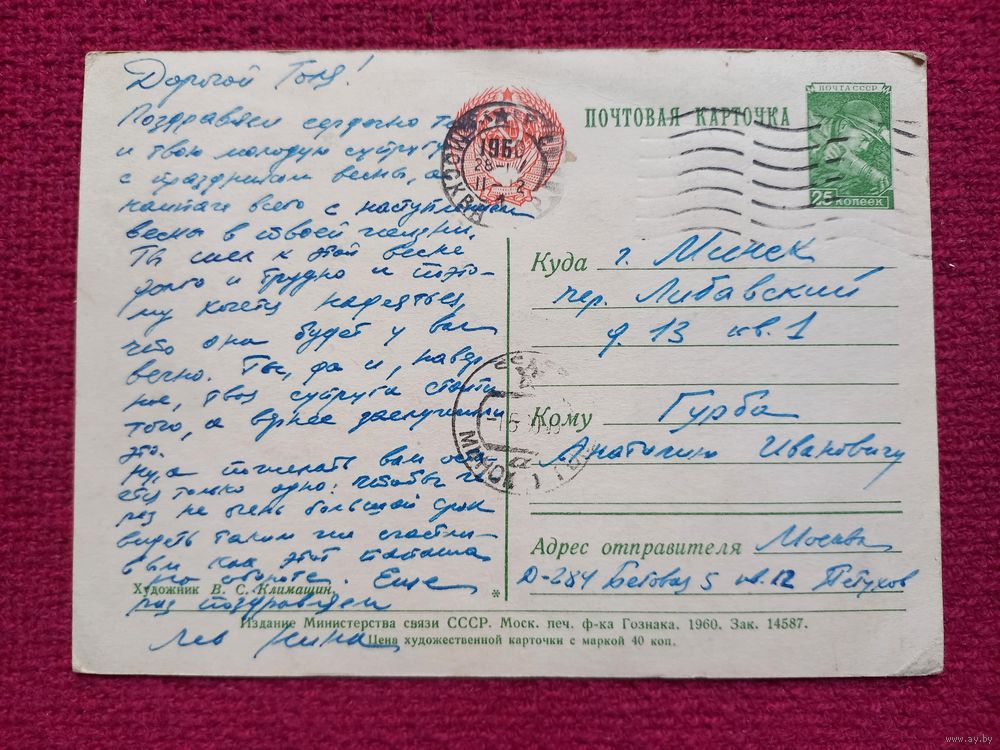 Дорогой Толя!
Поздравляем сердечно
и твою молодую супругу
с праздником весны, а
всего с наступлением
весны в твоей жизни.
Ты шел к этой весне
долго и трудно и поэто-
му хочется надеяться,
что она будет у вас
вечно. Ты, да и, навер
ное, твоя супруга стоите
того, а вернее заслужили
это.
Ну, а пожелать вам
только одно: чтобы че
рез не очень большой срок
видеть таким же счастли-
вым как этот папаша
на обороте. Еще
раз поздравляем
Лев Нина
ПОЧТОВАЯ КАРТОЧКА
ПОЧТА СССР
25 КОПЕЕК
МОСКВА
1960
Куда г. Минск
пер. Либавский
д. 13 кв. 1
МИНСК
Кому Гурба
Анатолию Ивановичу
Адрес отправителя Москва
Д-284 Беговая 5 кв. 12 Петухов
Художник В. С. Климашин.
*
Издание Министерства связи СССР. Моск. печ. ф-ка Гознака. 1960. Зак. 14587.
Цена художественной карточки с маркой 40 коп.
www.ay.by